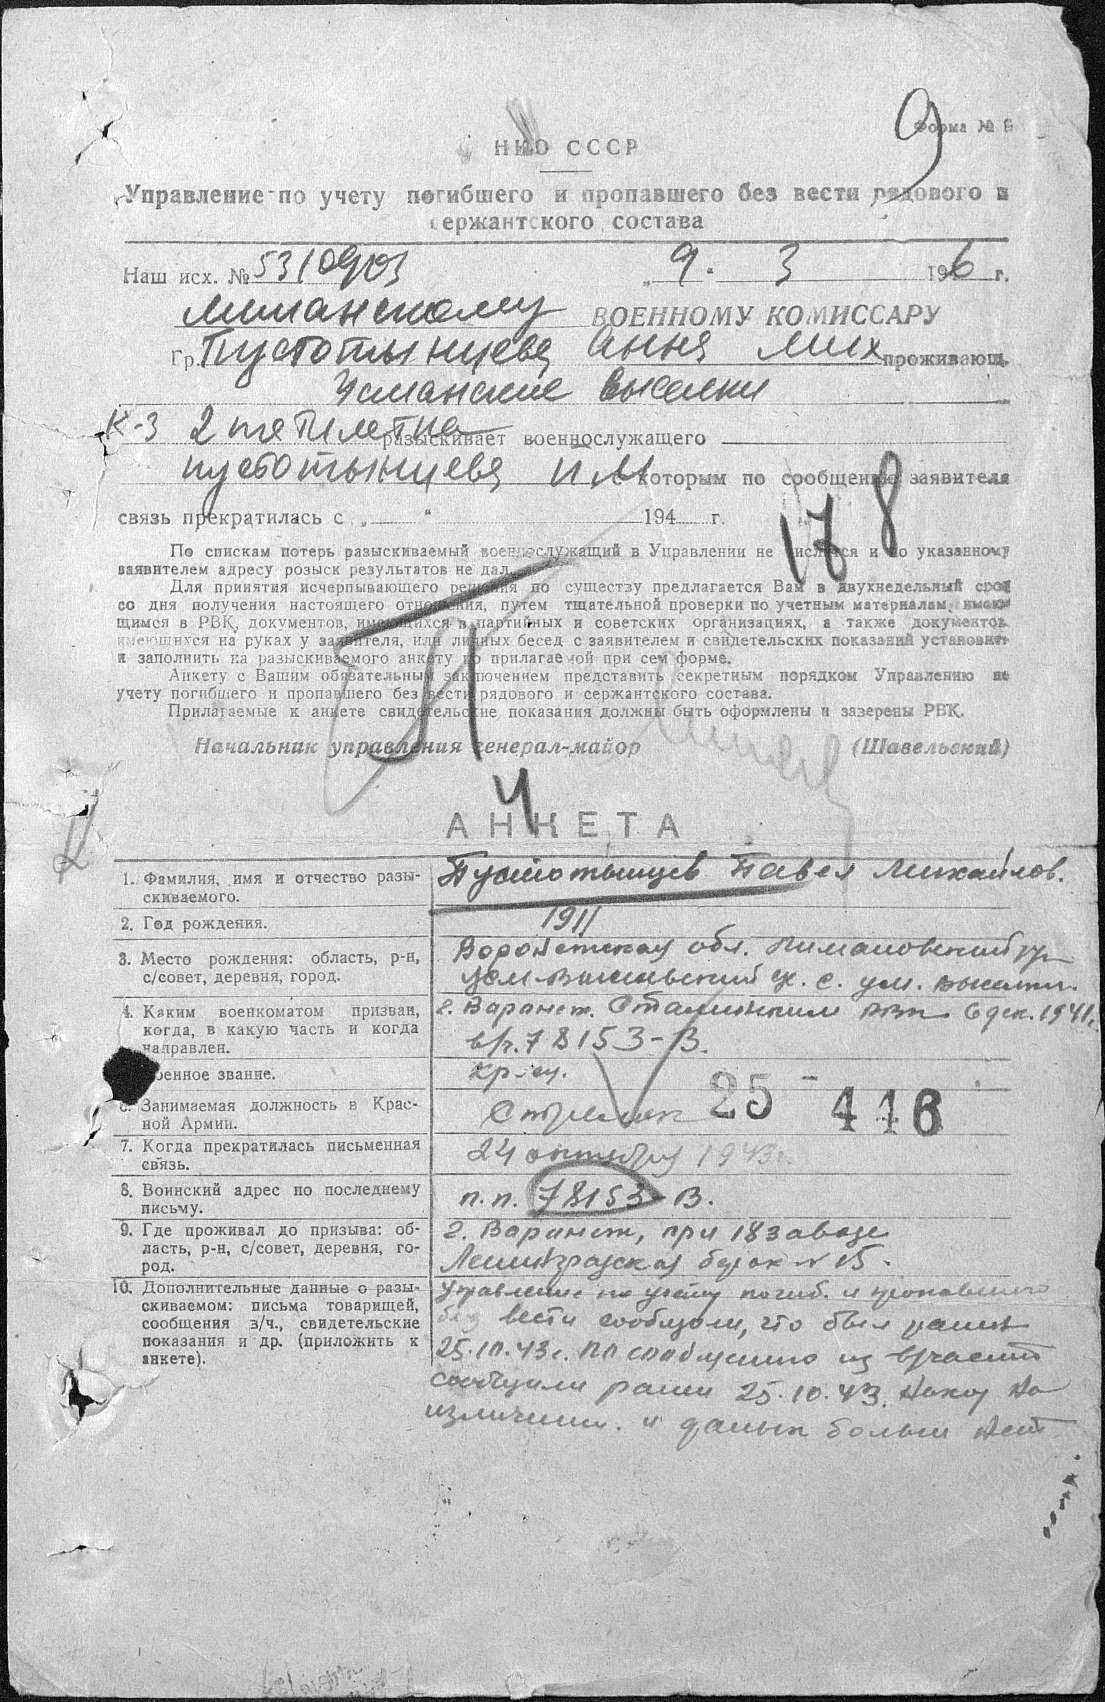 Форма № 9
9
НКО СССР
Управление по учету погибшего и пропавшего без вести рядового и
сержантского состава
Наш исх. № 53/0903 „ 9. 3 1946 г.
ВОЕННОМУ КОМИССАРУ
Гр. Пустотынцева Анна Мих проживающ.
Усманские выселки
К-З 2 пятилетка разыскивает военнослужащего
Пустотынцева П.М с которым по сообщению заявителя
связь прекратилась с „ “ 194 г.
178
По спискам потерь разыскиваемый военнослужащий в Управлении не числится и по указанному
заявителем адресу розыск результатов не дал.
Для принятия исчерпывающего решения по существу предлагается Вам в двухнедельный срок
со дня получения настоящего отношения, путем тщательной проверки по учетным материалам, имею-
щимся в РВК, документов, имеющихся в партийных и советских организациях, а также документов
имеющихся на руках у заявителя, или личных бесед с заявителем и свидетельских показаний установить
и заполнить на разыскиваемого анкету по прилагаемой при сем форме.
Анкету с Вашим обязательным заключением представить секретным порядком Управлению по
учету погибшего и пропавшего без вести рядового и сержантского состава.
Прилагаемые к анкете свидетельские показания должны быть оформлены и заверены РВК.
Начальник управления генерал-майор (Шавельский)
АНКЕТА
1. Фамилия, имя и отчество разы-
скиваемого.
Пустотынцев Павел Михайлов.
2. Год рождения.
1911
3. Место рождения: область, р-н,
с/совет, деревня, город.
Воронежская обл.
4. Каким военкоматом призван,
когда, в какую часть и когда
направлен.
г. Воронеж. Сталинским РВК 6 дек. 1941г.
в/ч. 78153-В.
военное звание.
кр-ец.
6. Занимаемая должность в Крас-
ной Армии.
Стрелок
25-446
7. Когда прекратилась письменная
связь.
24 октября 1943г.
8. Воинский адрес по последнему
письму.
п.п. 78153-В.
9. Где проживал до призыва: об-
ласть, р-н, с/совет, деревня, го-
род.
г. Варанеж, при 18 заводе
Ленинградская барак № 15.
10. Дополнительные данные о разы-
скиваемом: письма товарищей,
сообщения в/ч., свидетельские
показания и др. (приложить к
анкете).
Управление по учету погиб. и пропавшего
без вести сообщали, что был ранен
25.10.43г. По сообщению из в/части
сообщили ранен 25.10.43.
и даных больш нет